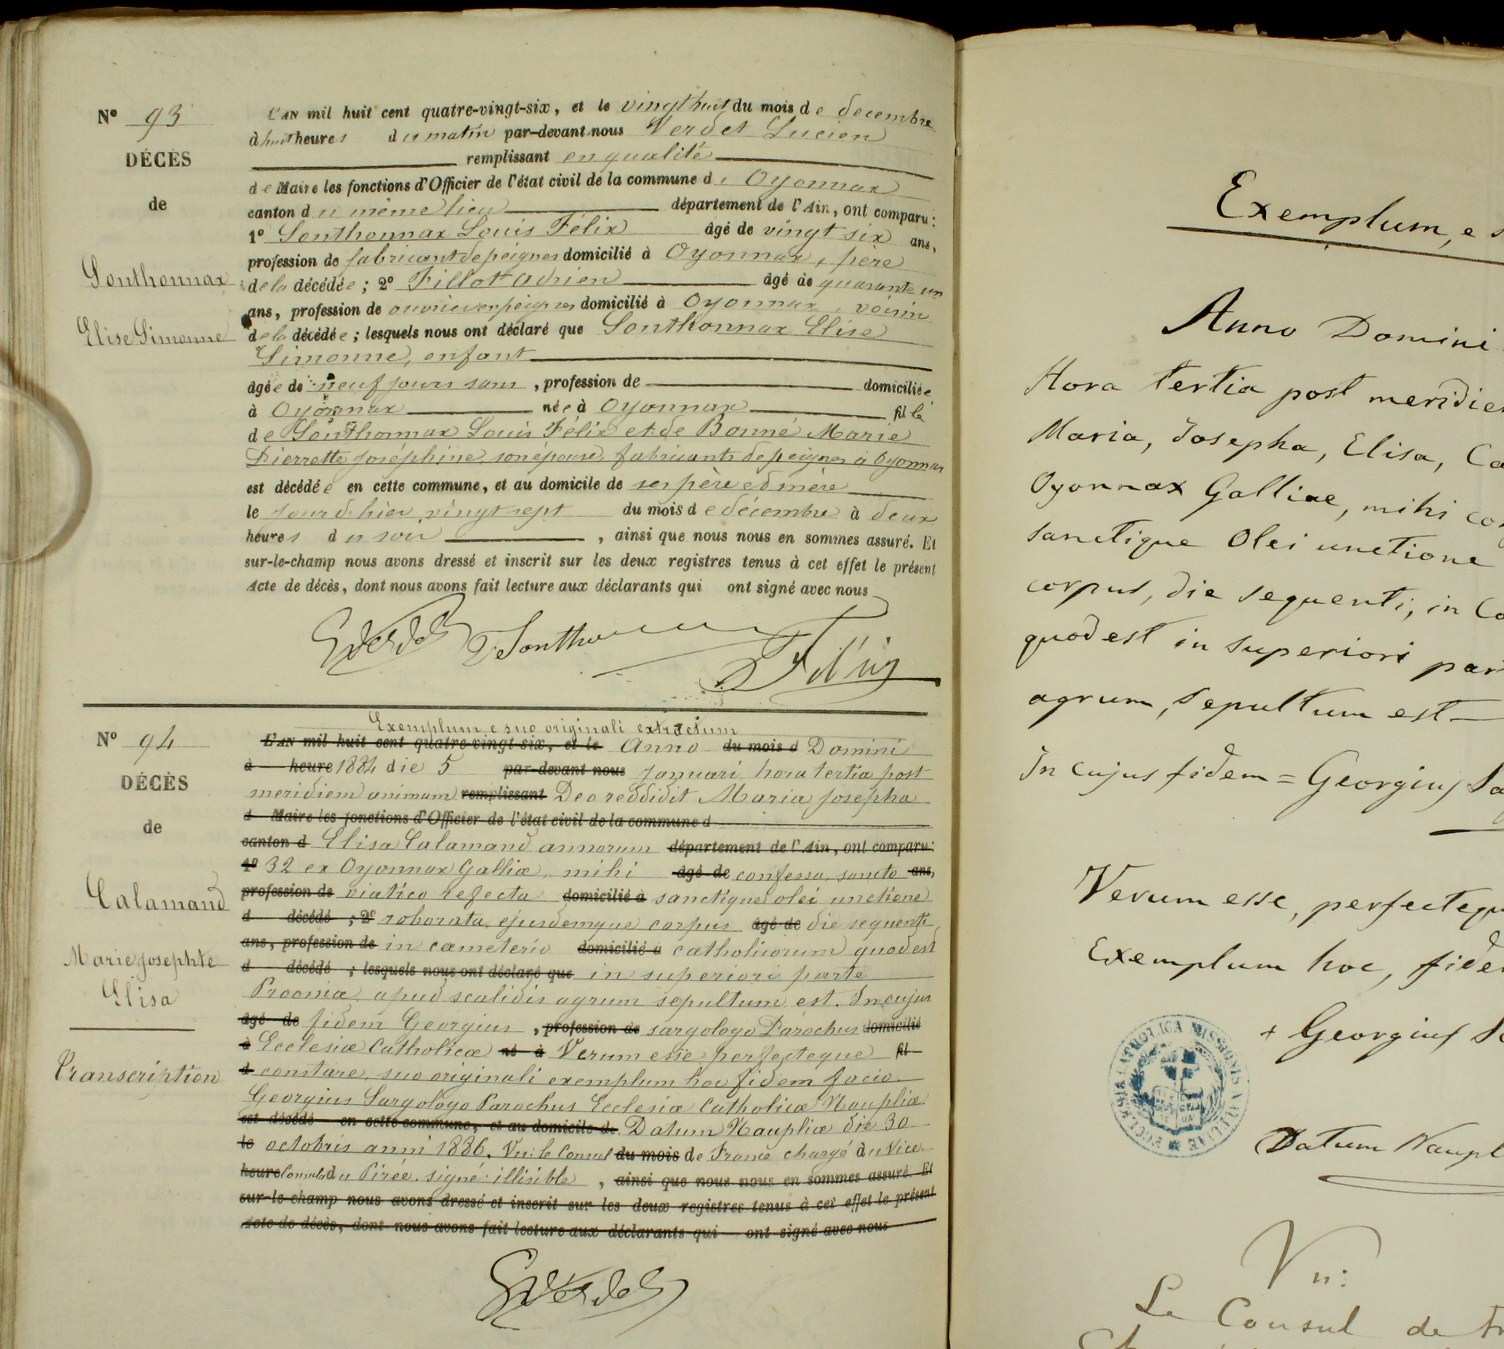 N° 93
DÉCÈS
de
Sonthonnax
Elise Simonne
L'AN mil huit cent quatre-vingt-six, et le vingt huit du mois de decembre
à huit heures du matin par-devant nous Verdet Lucien
remplissant en qualité
de Maire les fonctions d'Officier de l'état civil de la commune d' Oyonnax
canton du même lieu département de l'Ain, ont comparu :
1° Sonthonnax Louis Félix âgé de vingt six ans,
profession de fabricant de peignes domicilié à Oyonnax, père
de la décédée ; 2° Fillot Adrien âgé de quarante un
ans, profession de ouvrier en peignes domicilié à Oyonnax, voisin
de la décédée ; lesquels nous ont déclaré que Sonthonnax Elise
Simonne, enfant
âgée de neuf jours sans , profession de domiciliée
à Oyonnax née à Oyonnax fille
de Sonthonnax Louis Félix et de Bonné Marie
Pierrette Josephine son épouse fabricants de peignes à Oyonnax
est décédée en cette commune, et au domicile de ses père et mère
le jour d'hier vingt sept du mois de décembre à deux
heures du soir , ainsi que nous nous en sommes assuré. Et
sur-le-champ nous avons dressé et inscrit sur les deux registres tenus à cet effet le présent
acte de décès, dont nous avons fait lecture aux déclarants qui ont signé avec nous
N° 94
DÉCÈS
de
Calamand
Marie Josephte
Elisa
Transcription
Exemplum e suo originali extractum
L'AN mil huit cent quatre-vingt-six, et le Anno du mois d Domini
à heure 1884 die 5 par-devant nous Januari hora tertia post
meridiem animam remplissant Deo reddidit Maria Josepha
d Maire les fonctions d'Officier de l'état civil de la commune d
canton d Elisa Calamand annorum département de l'Ain, ont comparu :
1° 32 ex Oyonnax Galliæ, mihi âgé de confessa, sancto ans,
profession de viatico refecta domicilié à sanctique olei unctione
d décédé ; 2° roborata, ejusdemque corpus âgé de die sequenti
ans, profession de in cæmeterio domicilié à catholicorum quod est
d décédé ; lesquels nous ont déclaré que in superiori parte
Prooniæ apud scalidis agrum sepultum est. In cujus
âgé de fidem Georgius , profession de sargologo Parochus domicilié
à Ecclesiæ Catholicæ né à Verum esse perfecteque fil
d constare, suo originali exemplum hoc fidem facio.
Georgius Sargologo Parochus Ecclesiæ Catholicæ Naupliæ
est décédé en cette commune, et au domicile de Datum Naupliæ die 30
le octobris anni 1886. Vu: le Consul du mois de France chargé du Vice
heure Consulat du Pirée. signé: illisible , ainsi que nous nous en sommes assuré. Et
sur-le-champ nous avons dressé et inscrit sur les deux registres tenus à cet effet le présent
acte de décès, dont nous avons fait lecture aux déclarants qui ont signé avec nous
Exemplum, e s
Anno Domini
Hora tertia post meridiem
Maria, Josepha, Elisa, Ca
Oyonnax Galliae, mihi co
sanctique Olei unctione
corpus, die sequenti, in Co
quod est in superiori par
agrum, sepultum est
In cujus fidem = Georgius Sa
Verum esse, perfectequ
Exemplum hoc, fide
+ Georgius Sa
Datum Naupl
Vu:
Le Consul de Fr